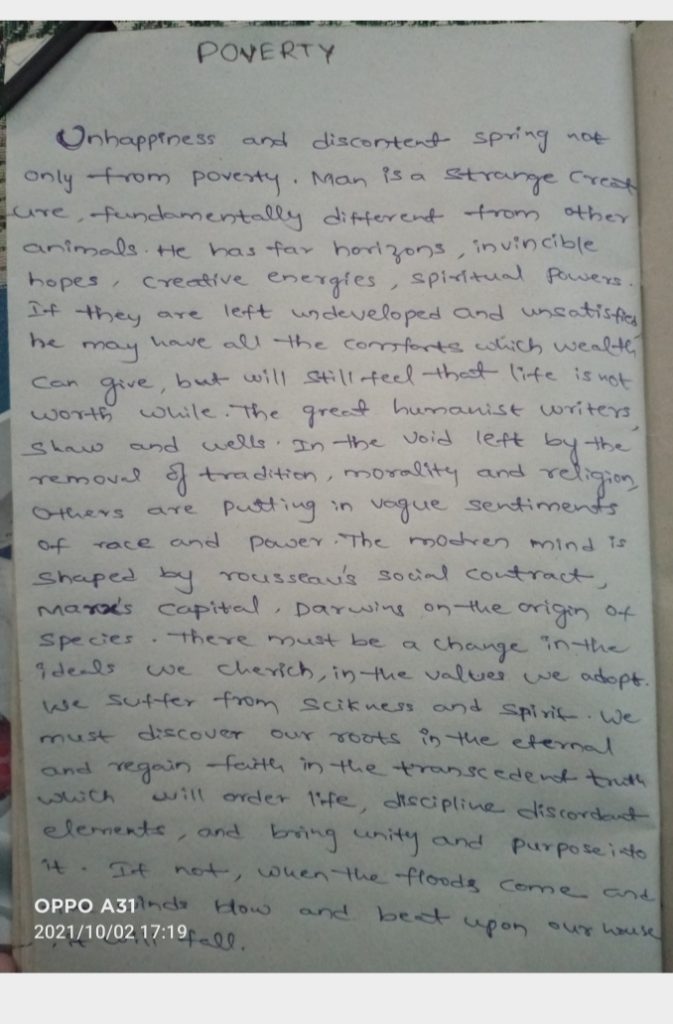 POVERTY
Unhappiness and discontent spring not
only from poverty. Man is a strange Creat
ure, fundamentally different from other
animals. He has far horizons, invincible
hopes, creative energies, spiritual Powers.
If they are left undeveloped and unsatisfied
he may have all the comforts which wealth
can give, but will still feel that life is not
worth while. The great humanist writers,
Shaw and wells. In the void left by the
removal of tradition, morality and religion,
others are putting in vague sentiments
of race and power. The modren mind is
shaped by rousseau's social contract,
Marx's Capital, Darwins on the origin of
species. There must be a change in the
ideals we cherich, in the values we adopt.
We suffer from scikness and spirit. We
must discover our roots in the eternal
and regain faith in the transcedent truth
which will order life, discipline discordant
elements, and bring unity and purpose into
it. If not, when the floods come and
inds blow and beat upon our house
fall.
OPPO A31
2021/10/02 17:19